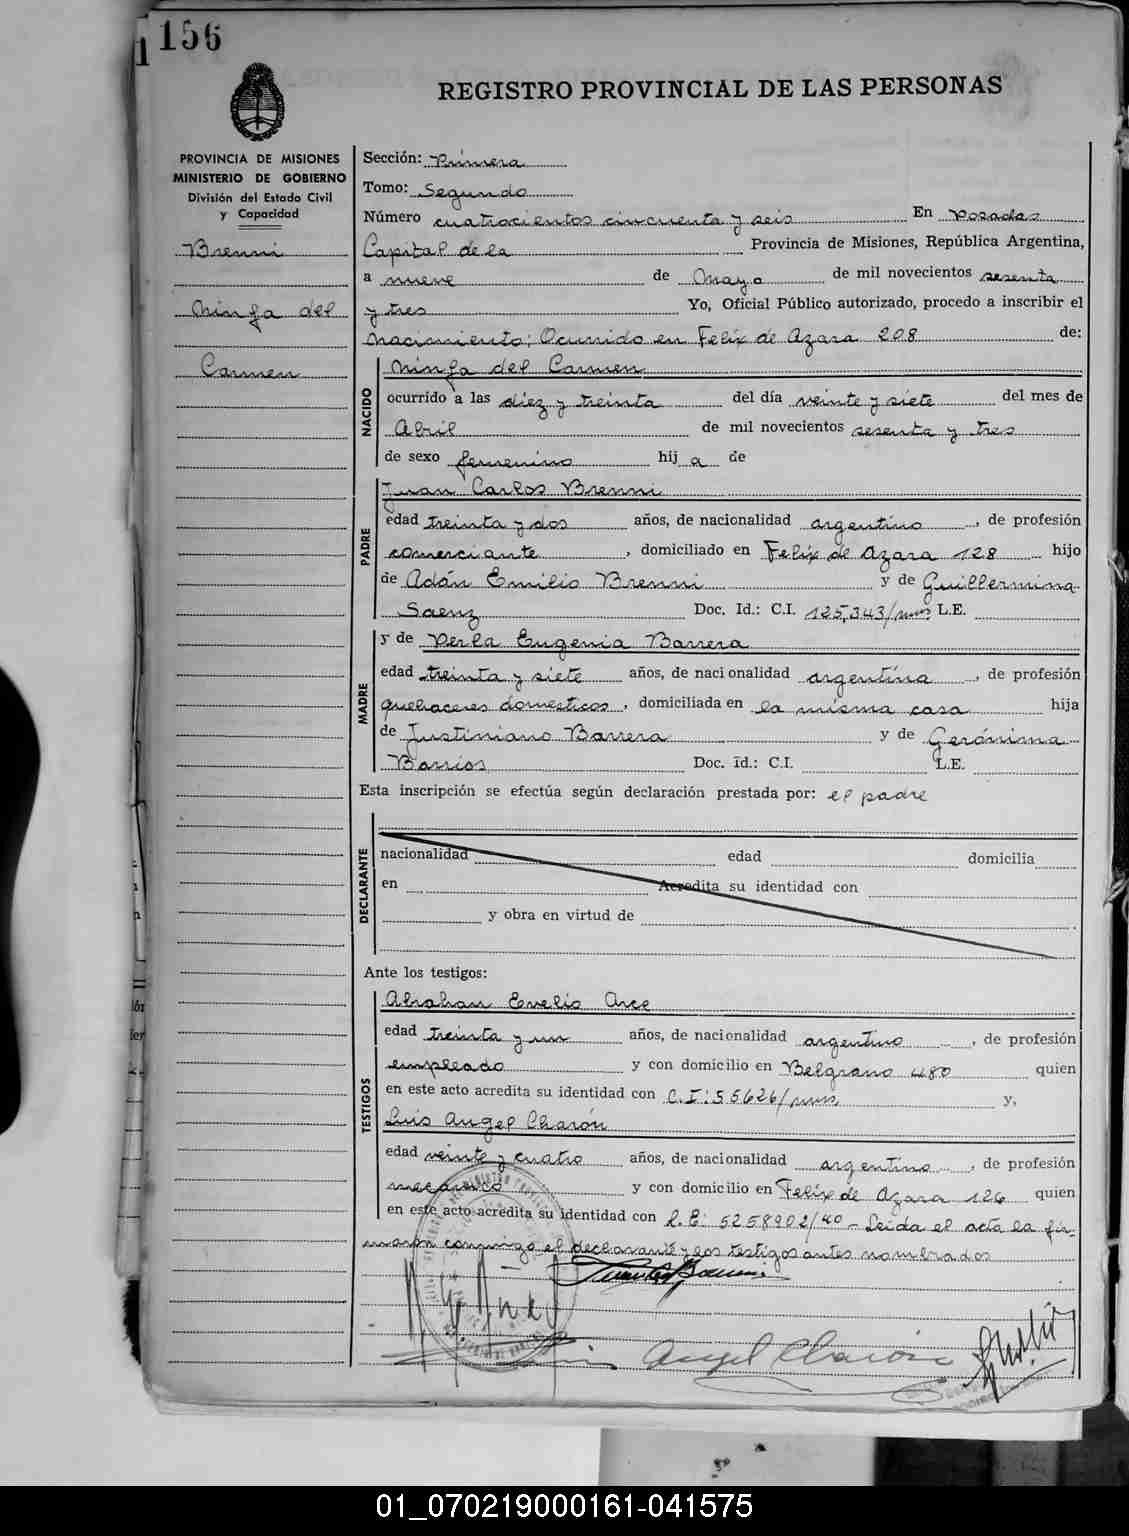 156
REGISTRO PROVINCIAL DE LAS PERSONAS
PROVINCIA DE MISIONES
MINISTERIO DE GOBIERNO
División del Estado Civil
y Capacidad
Brenni
Ninfa del
Carmen
Sección: Primera
Tomo: Segundo
Número cuatrocientos cincuenta y seis En Posadas
Capital de la Provincia de Misiones, República Argentina,
a nueve de Mayo de mil novecientos sesenta
y tres Yo, Oficial Público autorizado, procedo a inscribir el
Nacimiento; Ocurrido en Felix de Azara 208 de:
NACIDO
Ninfa del Carmen
ocurrido a las diez y treinta del día veinte y siete del mes de
Abril de mil novecientos sesenta y tres
de sexo femenino hij a de
PADRE
Juan Carlos Brenni
edad treinta y dos años, de nacionalidad argentino, de profesión
comerciante, domiciliado en Felix de Azara 128 hijo
de Adán Emilio Brenni y de Guillermina
Saenz Doc. Id.: C.I. 125,343/mnes L.E.
MADRE
y de Perla Eugenia Barrera
edad treinta y siete años, de nacionalidad argentina, de profesión
quehaceres domesticos, domiciliada en la misma casa hija
de Justiniano Barrera y de Gerónima
Barrios Doc. Id.: C.I. L.E.
Esta inscripción se efectúa según declaración prestada por: el padre
DECLARANTE
nacionalidad edad domicilia
en Acredita su identidad con
y obra en virtud de
Ante los testigos:
TESTIGOS
Abrahan Evelio Arce
edad treinta y un años, de nacionalidad argentino, de profesión
empleado y con domicilio en Belgrano 480 quien
en este acto acredita su identidad con C.I: 55626/mnes y,
Luis Angel Charón
edad veinte y cuatro años, de nacionalidad argentino, de profesión
mecánico y con domicilio en Felix de Azara 126 quien
en este acto acredita su identidad con L.E: 5258902/40 - Leida el acta la fir-
maron conmigo el declarante y los testigos antes nombrados
Angel Charón
01_070219000161-041575